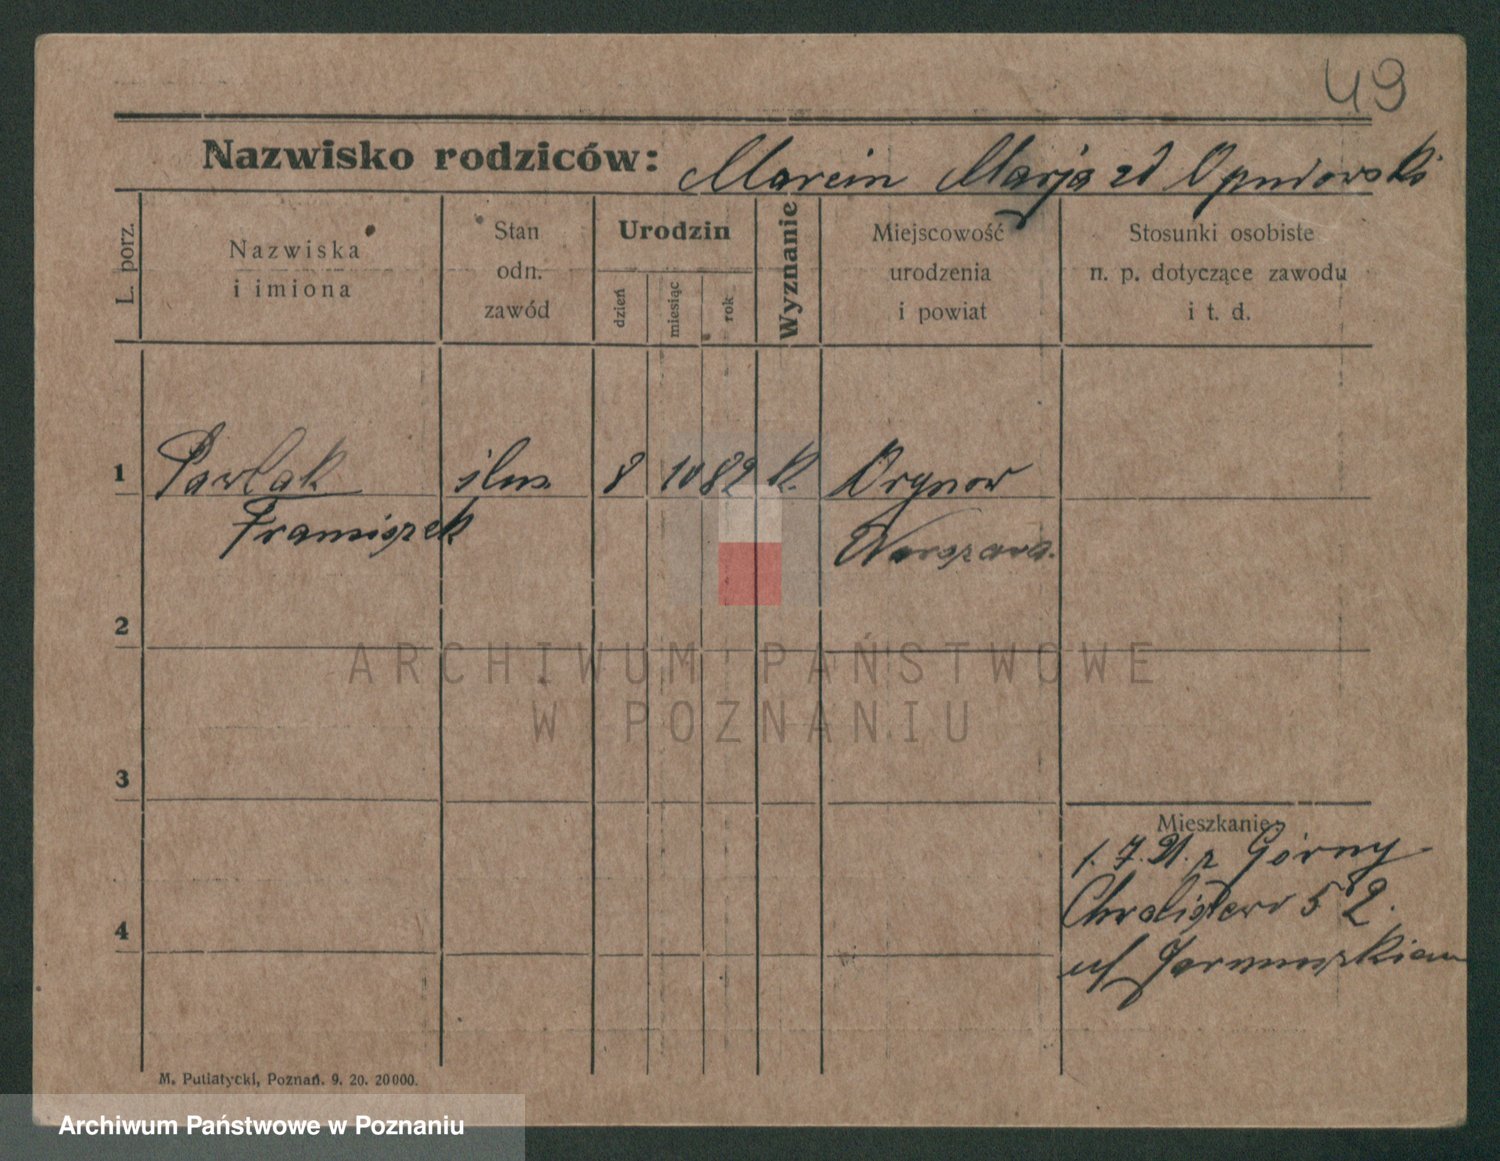 49
Nazwisko rodziców: Marcin Marja zd
L. porz.
Nazwiska i imiona
Stan odn. zawód
Urodzin
dzień
miesiąc
rok
Wyznanie
Miejscowość urodzenia i powiat
Stosunki osobiste n. p. dotyczące zawodu i t. d.
1 Pawlak ślus 8 10 82 k.
Franciszek Warszawa.
2
ARCHIWUM PAŃSTWOWE
W POZNANIU
3
Mieszkanie:
1.7.21. z Górny
4
5 2.
ul
M. Putiatycki, Poznań. 9. 20. 20000.
Archiwum Państwowe w Poznaniu